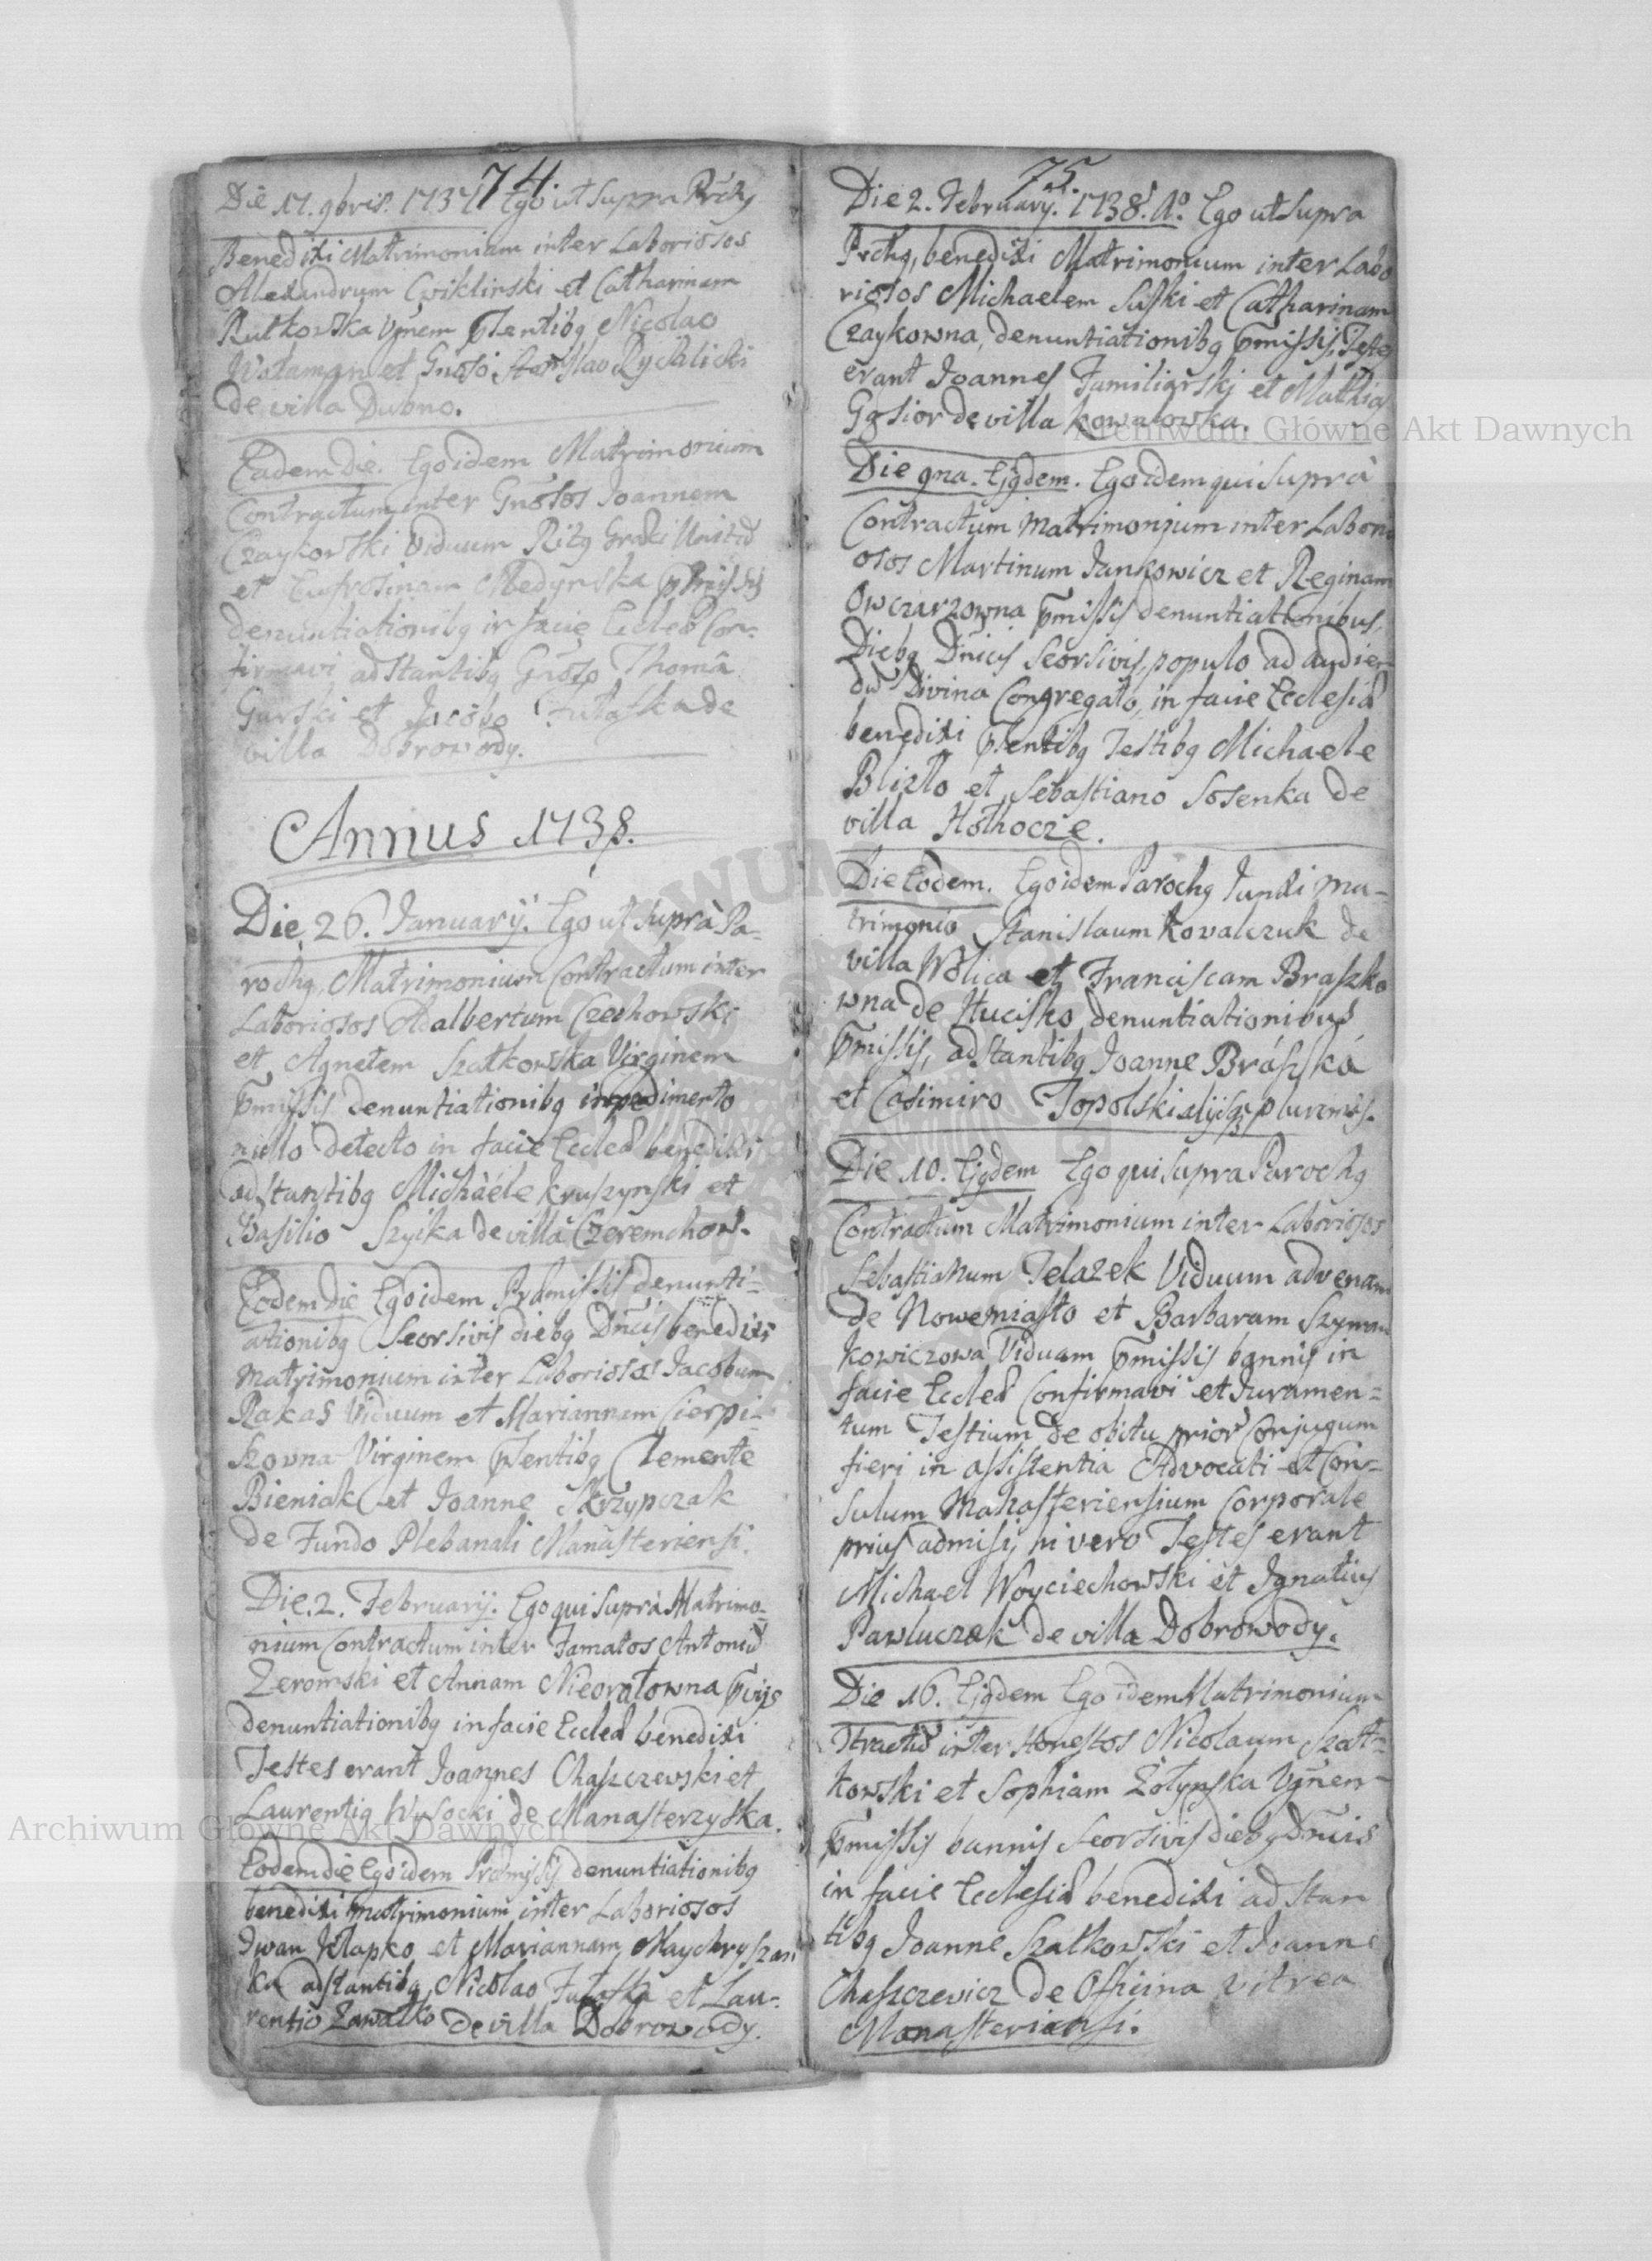 74.
Die 17. 9bris. 1737 Ego ut supra Prchq
Benedixi Matrimonium inter Laboriosos
Alexandrum Cwiklinski et Catharinam
Rutkowska Vgnem pſentibq Nicolao
Wataman et Gnoso Stanislao Rychlicki
de villa Dubno.
Eadem die. Ego idem Matrimonium
Contractum inter Gnosos Joannem
Czaykowski Viduum Ritq Graeci Unitū
et Eufrosinam Medynska
denuntiationibq in facie Ecclae Con-
firmavi adstantibq Gnoso Thomâ
Gurski et Jacobo Futaska de
villa Dobrowody.
Annus 1738.
Die 26. Januarÿ. Ego ut suprà Pa-
rochq, Matrimonium Contractum inter
Laboriosos Adalbertum Czechowski
et Agnetem Szatkowska Virginem
pmissis denuntiationibq impedimento
nullo detecto in facie Ecclae benedixi
adstantibq Michaéle Kruszynski et
Basilio Szyika de villa Czeremchow.
Eodem die Ego idem Praemissis denunti-
ationibq Seorsivis diebq Dnicis benedixi
matrimonium inter Laboriosos Jacobum
Rakas Viduum et Mariannam Cierpi-
szowna Virginem pſentibq Clemente
Bieniak et Joanne Skrzypczak
de Fundo Plebanali Manasteriensi.
Die. 2. Februarÿ. Ego qui suprà Matrimo-
nium Contractum inter Famatos Antoniū
Zeromski et Annam Nieoratowna pvijs
denuntiationibq in facie Ecclae benedixi
Testes erant Joannes Chaszczewski et
Laurentiq Wysocki de Manasterzyska.
Eodem die Ego idem Praemissis denuntiationibq
benedixi matrimonium inter Laboriosos
Iwan Klapko et Mariannam Maychryszan
ka adstantibq Nicolao Futaska et Lau-
rentio Zawatko de villa Dobrowody.
75.
Die 2. February. 1738. Ao. Ego ut supra
Prchq, benedixi Matrimonium inter Labo
riosos Michaelem Suski et Catharinam
Czaykowna, denuntiationibq pmissis, Testes
erant Joannes Familiarski et Mathias
Gąsior de villa Kowalowka.
Die 9na. Ejqdem. Ego idem qui Suprà
Contractum Matrimonium inter Labori
osos Martinum Jankowicz et Reginam
Owczarzowna pmissis denuntiationibus,
Diebq Dnicis Seorsivis, populo ad audien
dū Divina Congregato, in facie Ecclesiae
benedixi pſentibq Testibq Michaele
Blizlo et Sebastiano Sosenka de
villa Hołhocze.
Die Eodem. Ego idem Parochq Junxi ma-
trimonio Stanislaum Kovalczuk de
villa Wolica et Franciscam Braszko
wna de Hucisko denuntiationibus
pmissis, adstantibq Joanne Braszká
et Casimiro Topolski alijsq plurimis.
Die 10. Ejqdem Ego qui supra Parochq
Contractum Matrimonium inter Laboriosos
Sebastianum Telazek Viduum advenam
de Nowemiasto et Barbaram Szyman
kowiczowa Viduam pmissis bannis in
facie Ecclae Confirmavi et Juramen-
tum Testium de obitu prior Conjugum
fieri in assistentia Advocati et Con-
sulum Manasteriensium corporale
prius admisi, hi vero Testes erant
Michael Woyciechowski et Ignatius
Pawluczak de villa Dobrowody.
Die 16. Ejqdem Ego idem Matrimonium
Ctractū inter Honestos Nicolaum Szat-
kowski et Sophiam Zołynska Vgnem
pmissis bannis Seorsivis diebq Dnicis
in facie Ecclesiae benedixi adstan
tibq Joanne Szatkowski et Joanne
Chaszczewicz de Officina vitrea
Manasteriensi.
Archiwum Główne Akt Dawnych
Archiwum Główne Akt Dawnych